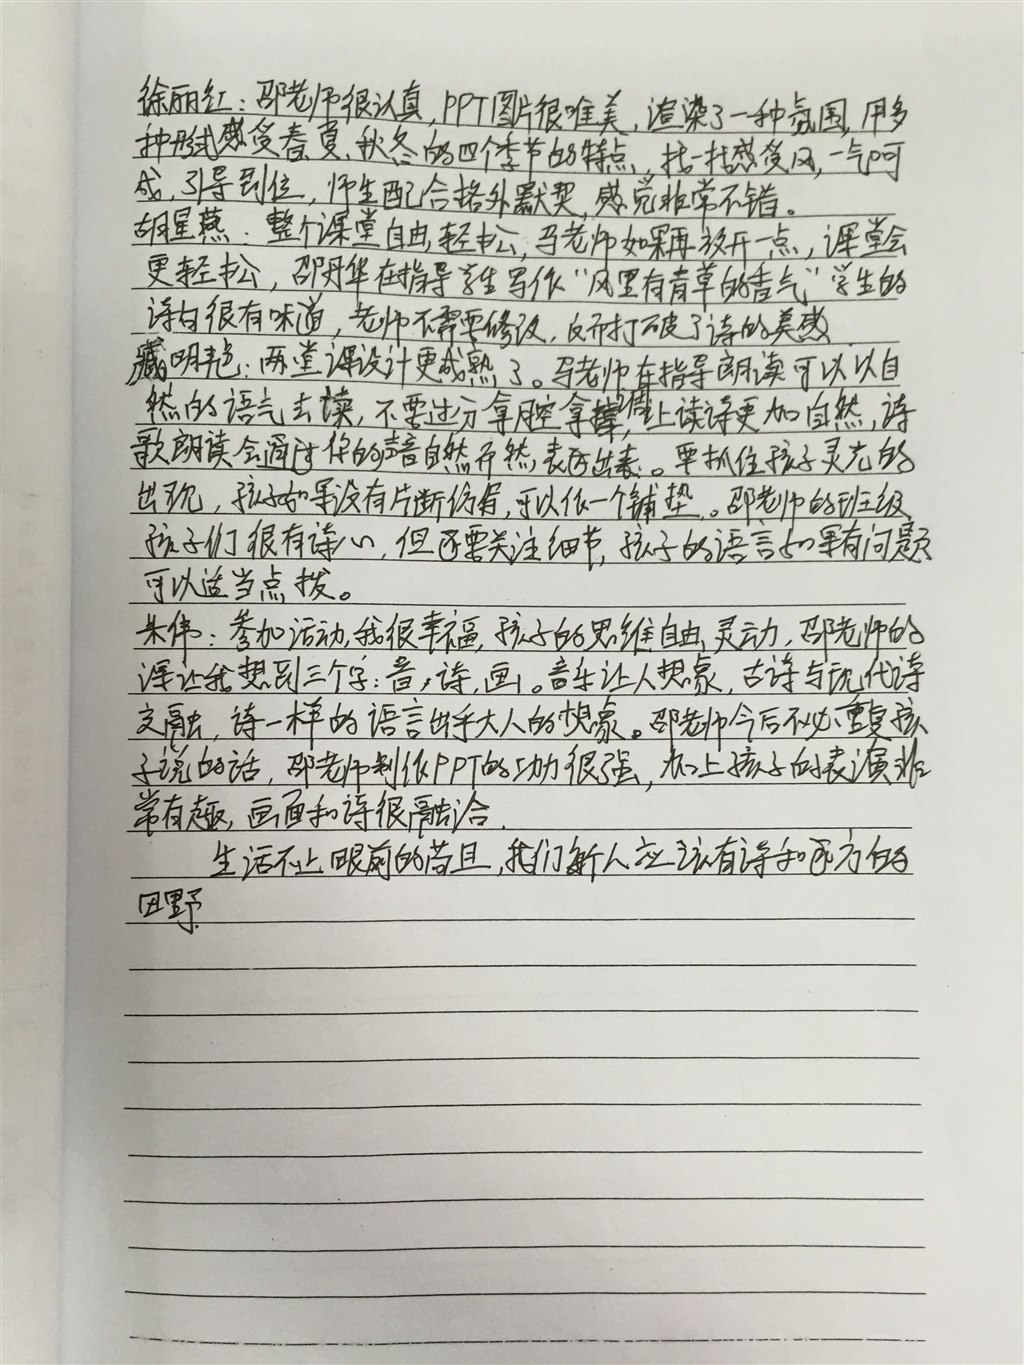 徐丽红：邵老师很认真，PPT图片很唯美，渲染了一种氛围，用多
种形式感受春、夏、秋、冬的四个季节的特点，找一找感受风，一气呵
成，引导到位，师生配合格外默契，感觉非常不错。
胡星燕：整个课堂自由，轻松，马老师如果再放开一点，课堂会
更轻松，邵丹华在指导学生写作“风里有青草的香气”学生的
诗句很有味道，老师不需要修改，反而打破了诗的美感
臧明艳：两堂课设计更成熟了。马老师在指导朗读可以以自
然的语气去读，不要过分拿腔拿调，让读诗更加自然，诗
歌朗读会通过你的声音自然而然，表达出来。要抓住孩子灵光的
出现，孩子如果没有片断仿写，可以作一个铺垫。邵老师的班级
孩子们很有诗心，但还要关注细节，孩子的语言如果有问题
可以适当点拨。
朱伟：参加活动，我很幸福，孩子的思维自由，灵动，邵老师的
课让我想到三个字：音，诗，画。音乐让人想象，古诗与现代诗
交融，诗一样的语言出乎大人的想象。邵老师今后不必重复孩
子说的话，邵老师制作PPT的功力很强，加上孩子的表演非
常有趣，画面和诗很融洽.
生活不止眼前的苟且，我们新人应该有诗和远方的
田野.